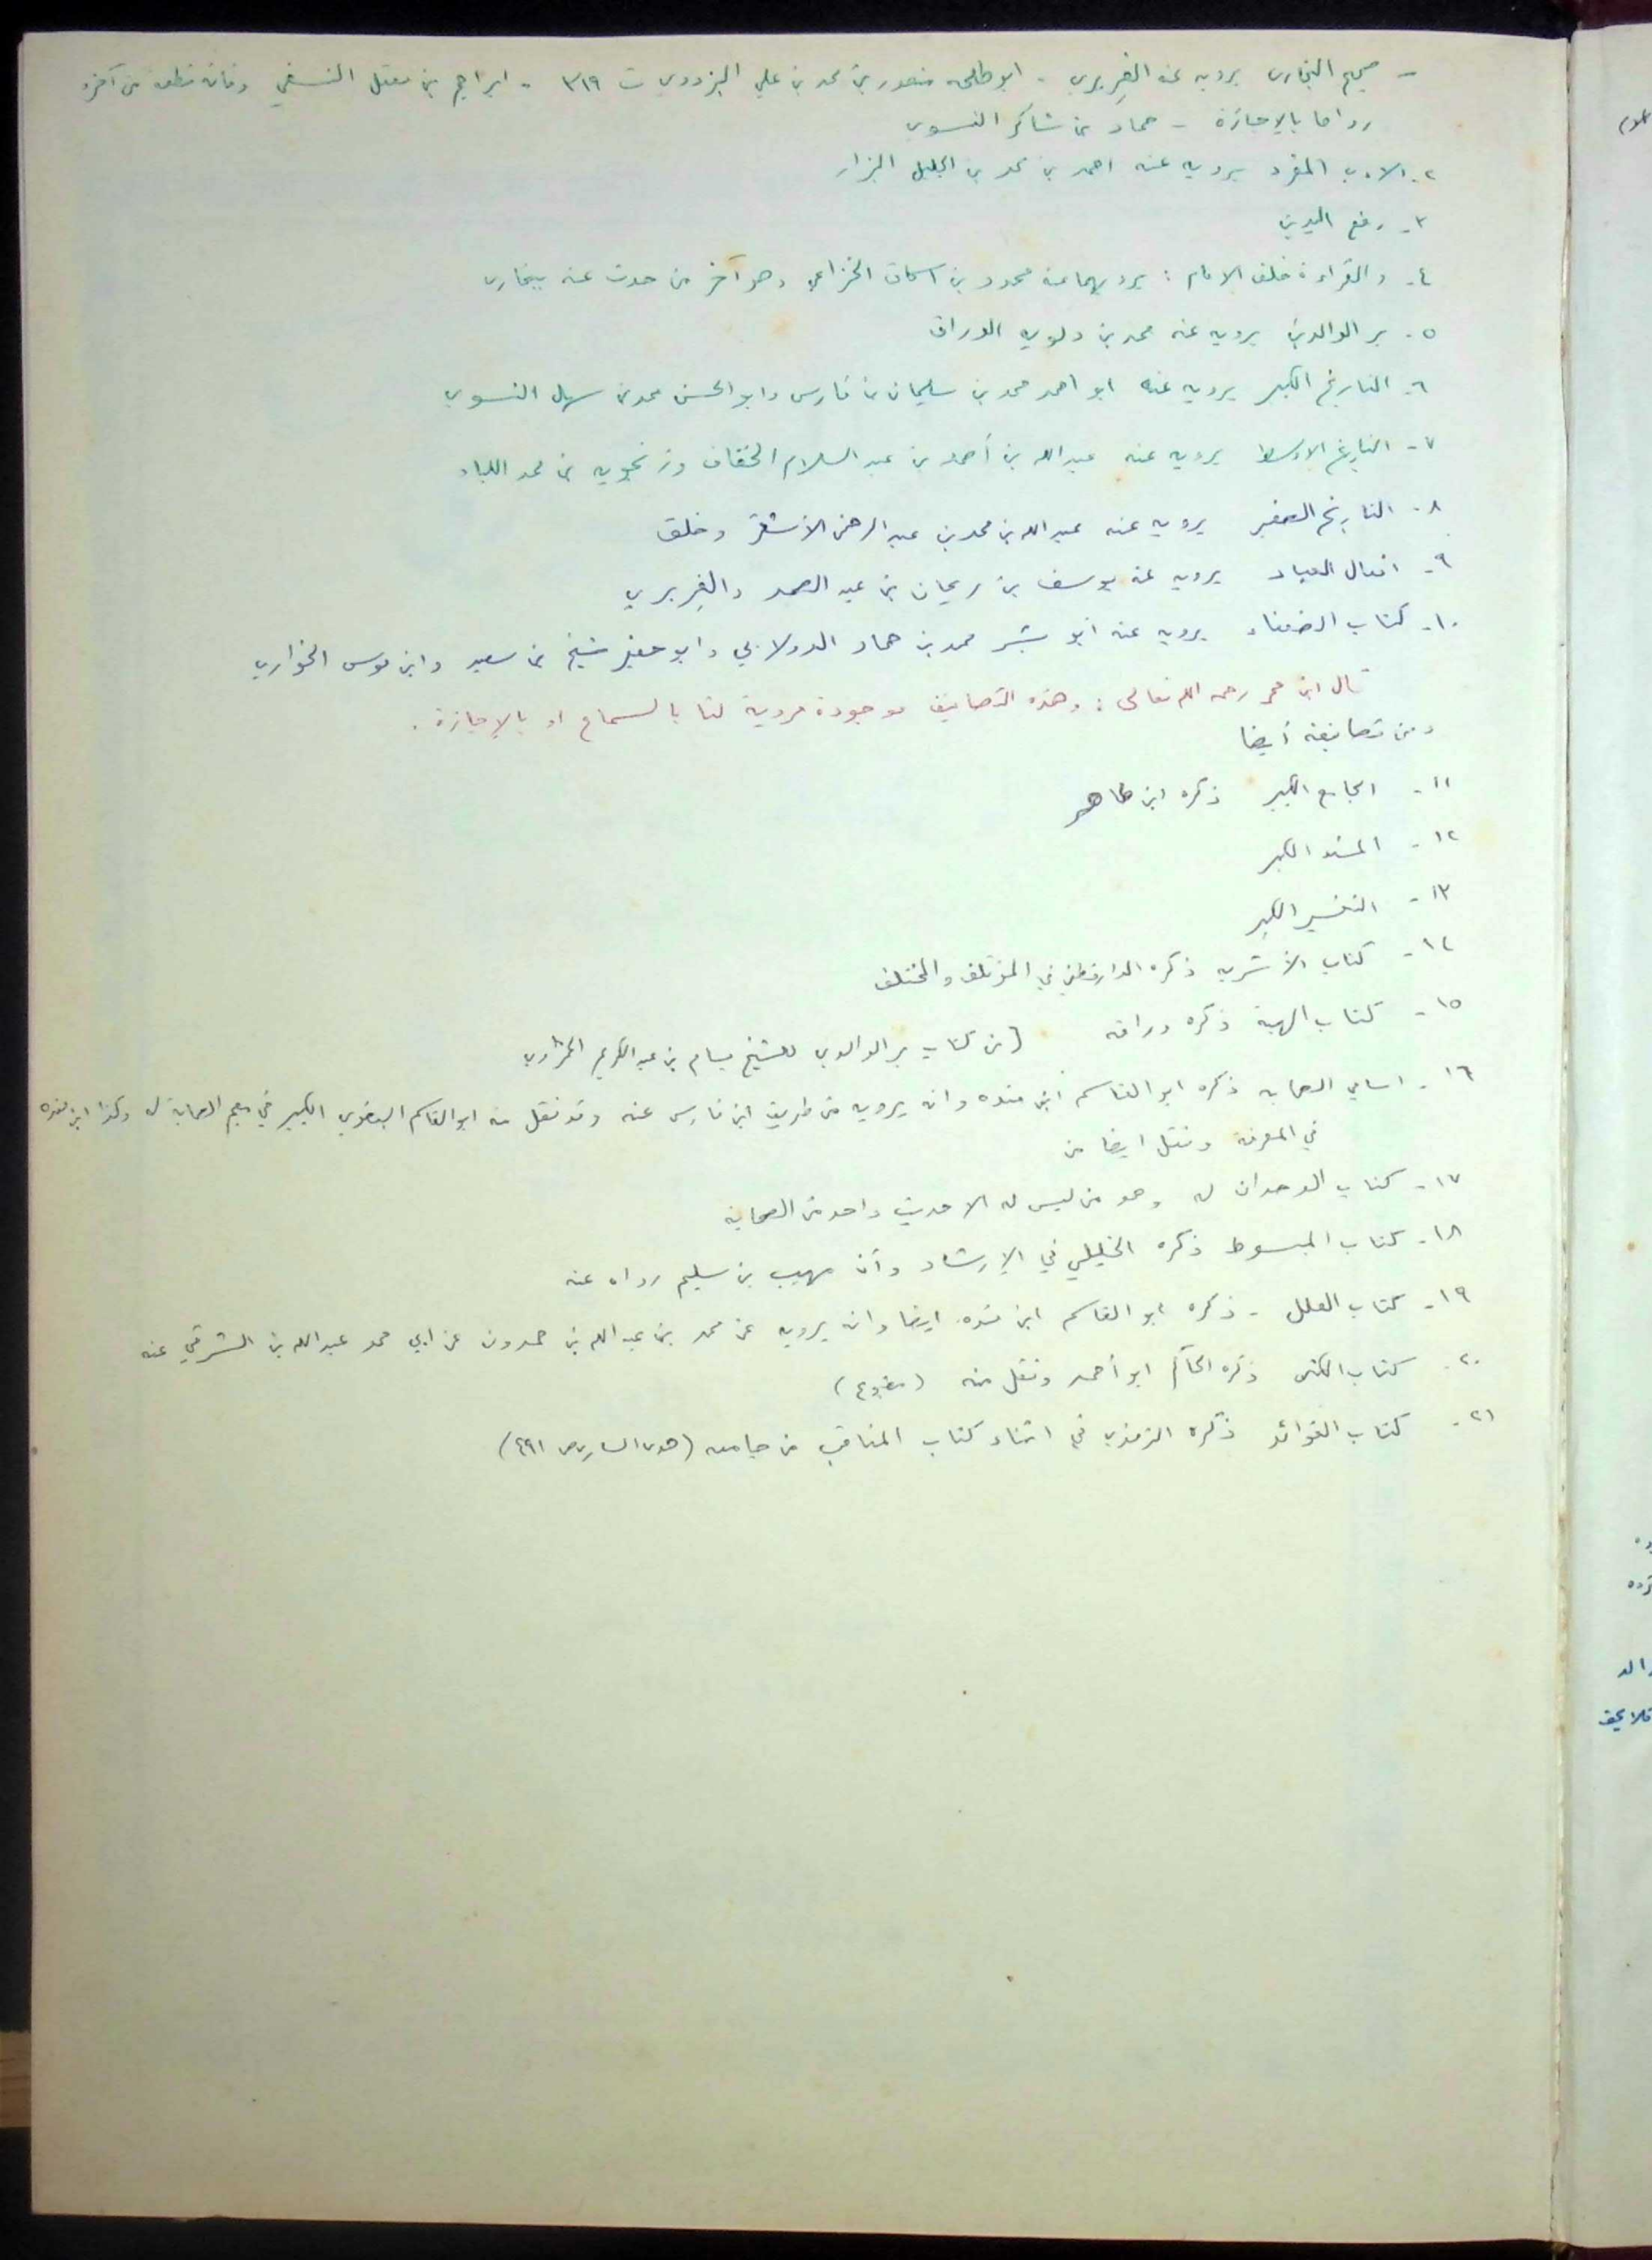 - صحيح البخاري يرويه عنه الفِربري - ابو طلحه منصور بن محمد بن علي البزدوي ت ٣١٩ - ابراهيم بن معقل النسفي وفاته قطعة من آخره
رواها بالإجازة - حماد بن شاكر النسوي
٢- الادب المفرد يرويه عنه احمد بن محمد بن الجليل البزار
٣- رفع اليدين
٤- والقراءة خلف الامام : يرويهما عنه محمود بن اسحاق الخزاعي وهو آخر من حدث عنه ببخارى
٥- بر الوالدين يرويه عنه محمد بن دلويه الوراق
٦- التاريخ الكبير يرويه عنه ابو احمد محمد بن سليمان بن فارس وابو الحسن محمد بن سهل النسوي
٧- التاريخ الاوسط يرويه عنه عبدالله بن أحمد بن عبد السلام الخفاف وزنجويه بن محمد اللباد
٨- التاريخ الصغير يرويه عنه عبدالله بن محمد بن عبد الرحمن الأشقر وخلق
٩- افعال العباد يرويه عنه يوسف بن ريحان بن عبد الصمد والفِربري
١٠- كتاب الضعفاء يرويه عنه أبو بشر محمد بن حماد الدولابي وابو جعفر شيخ بن سعيد وابن موسى الخواري
قال ابن حجر رحمه الله تعالى : وهذه التصانيف موجودة مروية لنا بالسماع او بالإجازة .
ومن تصانيفه أيضا
١١- الجامع الكبير ذكره ابن طاهر
١٢- المسند الكبير
١٣- التفسير الكبير
١٤- كتاب الأشربه ذكره الدارقطني في المؤتلف والمختلف
١٥- كتاب الهبة ذكره وراقه [من كتاب بر الوالدين للشيخ بسام بن عبد الكريم الحمزاوي
١٦- اسامي الصحابه ذكره ابو القاسم ابن منده وانه يرويه من طريق ابن فارس عنه وقد نقل منه ابو القاسم البغوي الكبير في معجم الصحابة له وكذا ابن منده
في المعرفة ونقل ايضا من
١٧- كتاب الوحدان له وهو من ليس له الا حديث واحد من الصحابة
١٨- كتاب المبسوط ذكره الخليلي في الإرشاد وأن مهيب بن سليم رواه عنه
١٩- كتاب العلل - ذكره ابو القاسم ابن منده ايضا وانه يرويه عن محمد بن عبدالله بن حمدون عن ابي محمد عبدالله بن الشرقي عنه
٢٠- كتاب الكنى ذكره الحاكم ابو أحمد ونقل منه (مطبوع)
٢١- كتاب الفوائد ذكره الترمذي في اثناء كتاب المناقب من جامعه (هدى الساري ص ٤٩١)